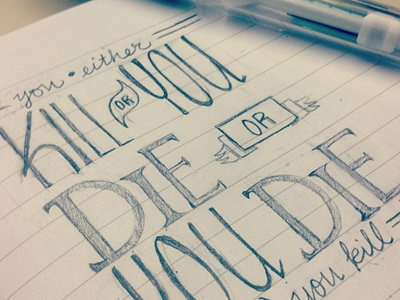 you • either
KILL OR YOU
DIE OR
YOU DIE
you kill